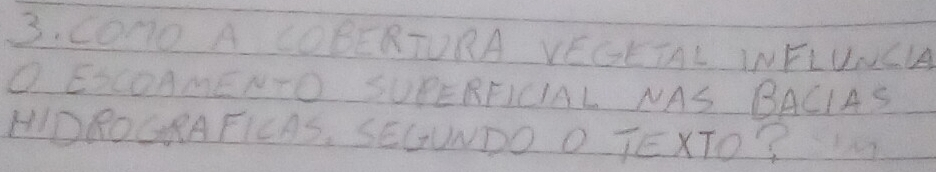 3. COMO A COBERTURA VEGETAL INFLUNCIA
O ESCOAMENTO SUPERFICIAL NAS BACIAS
HIDROGRAFICAS, SEGUNDO O TEXTO?